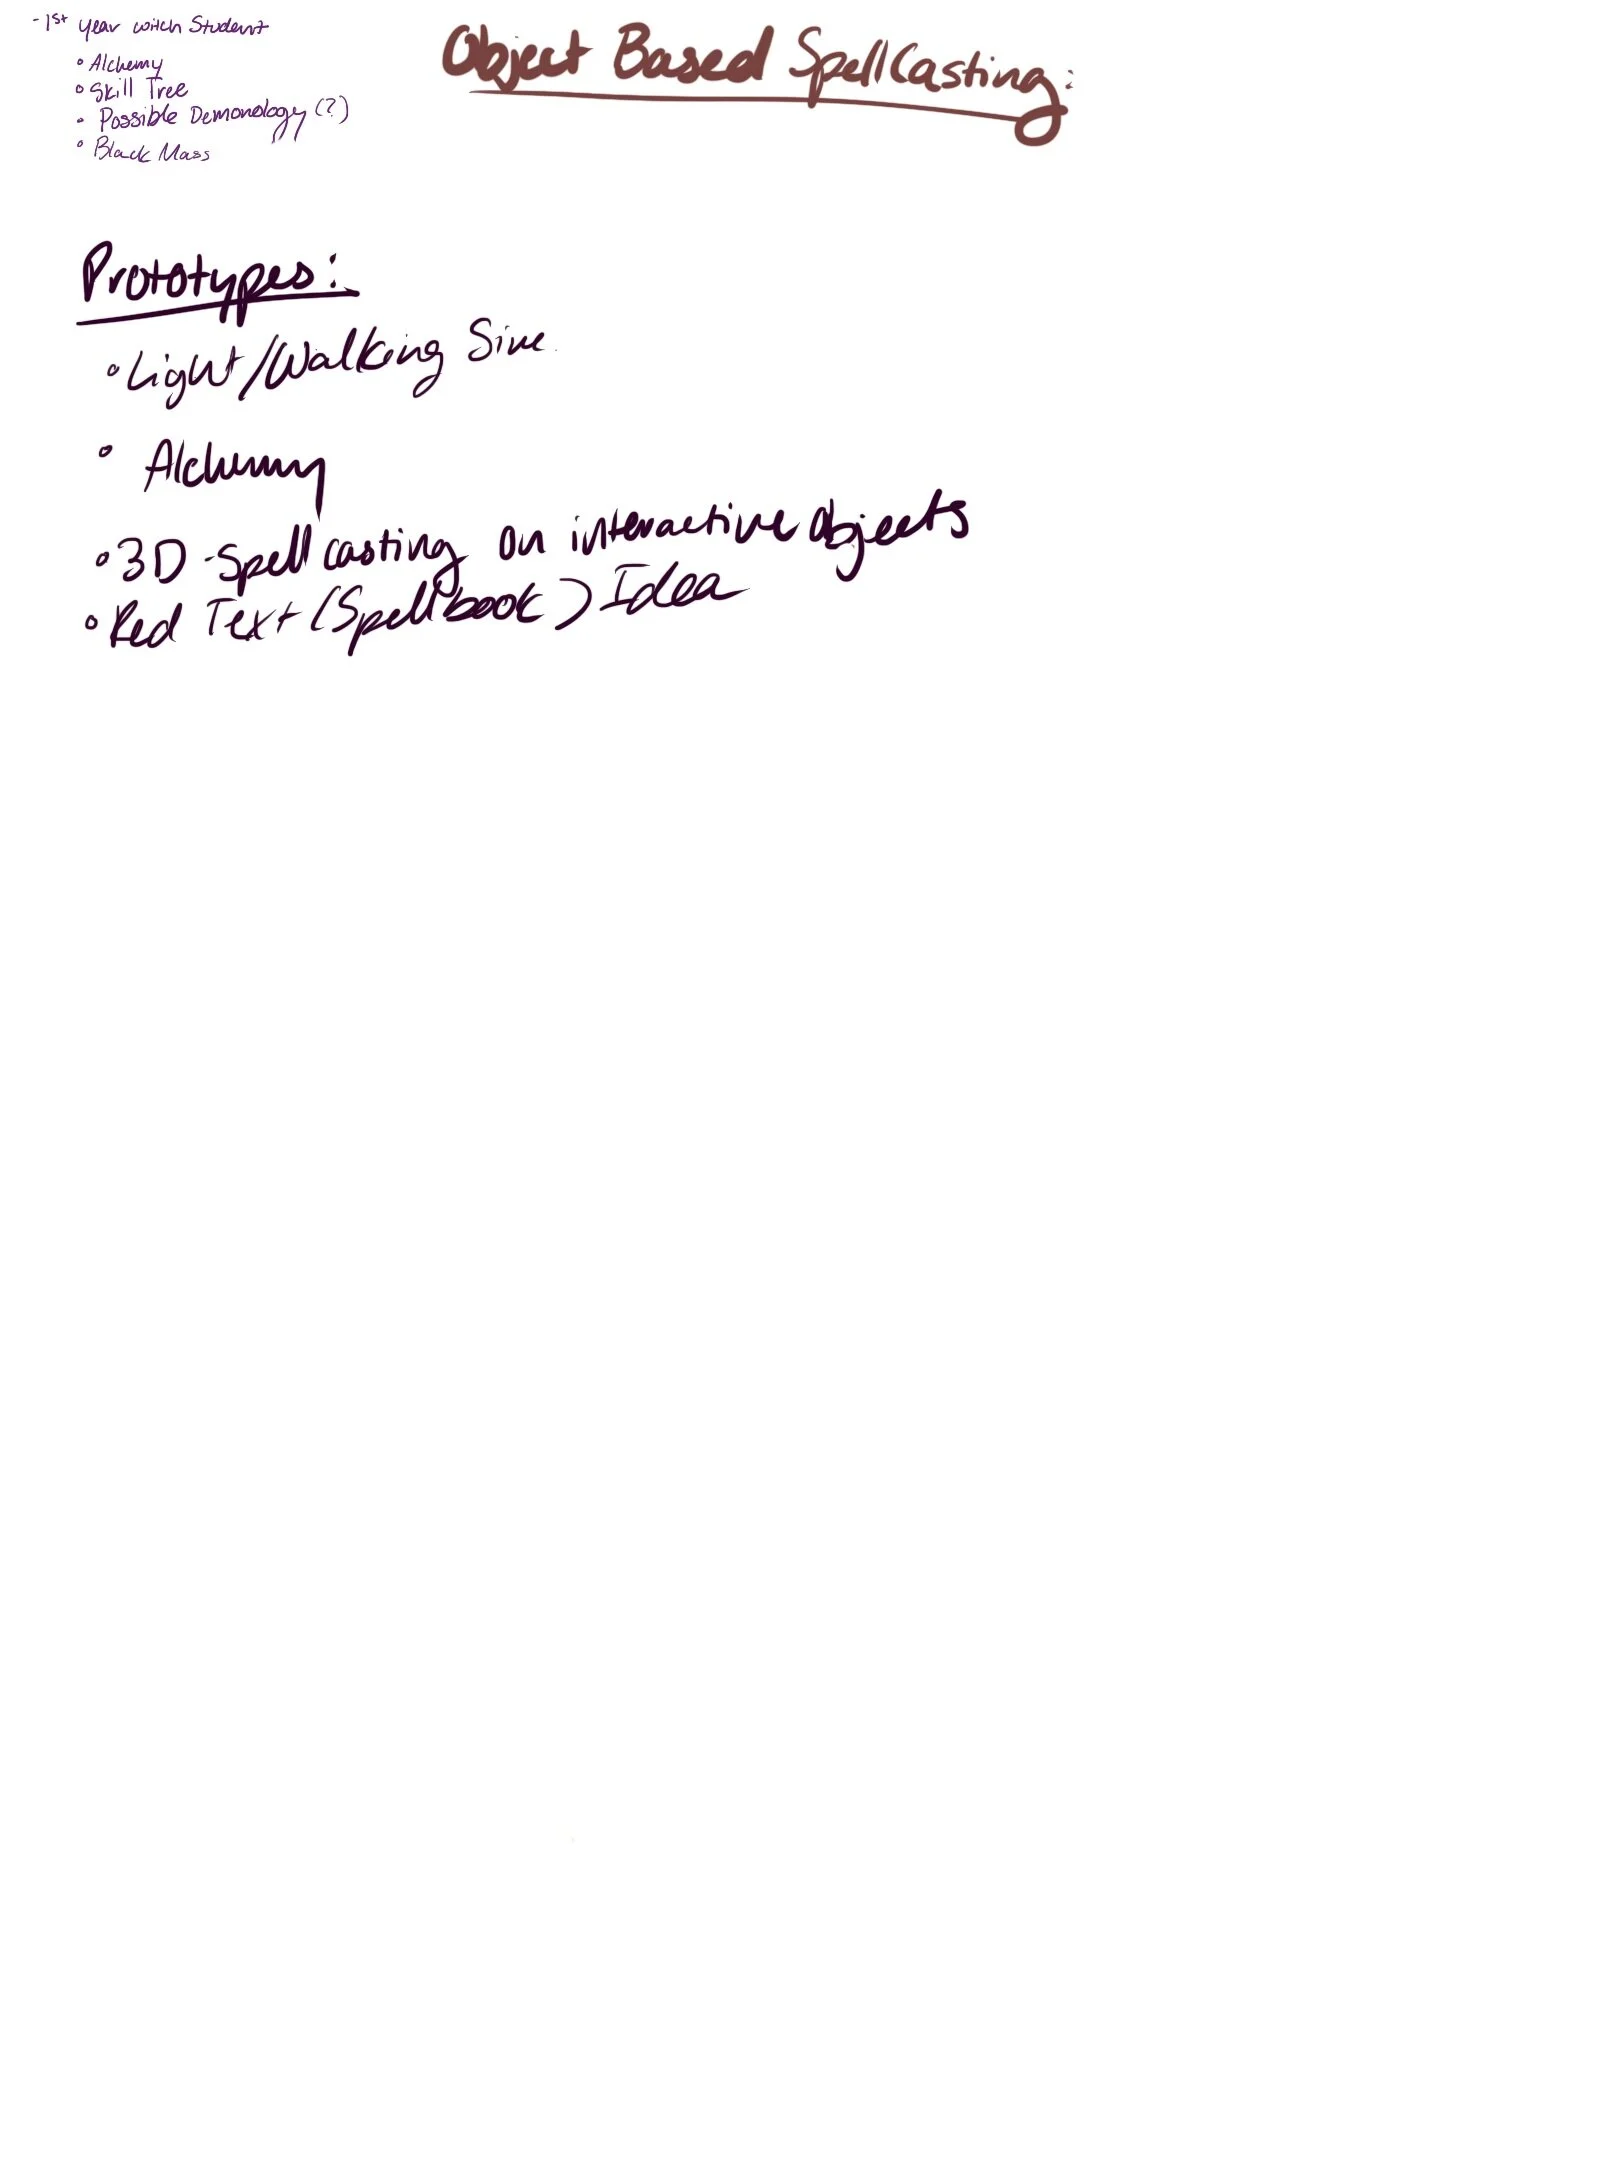 - 1st year witch Student
• Alchemy
• Skill Tree
• Possible Demonology (?)
• Black Mass
Object Based SpellCasting:
Prototypes:
• Light/Walking Sim
• Alchemy
• 3D-Spell casting on interactive objects
• Red Text (Spellbook) Idea